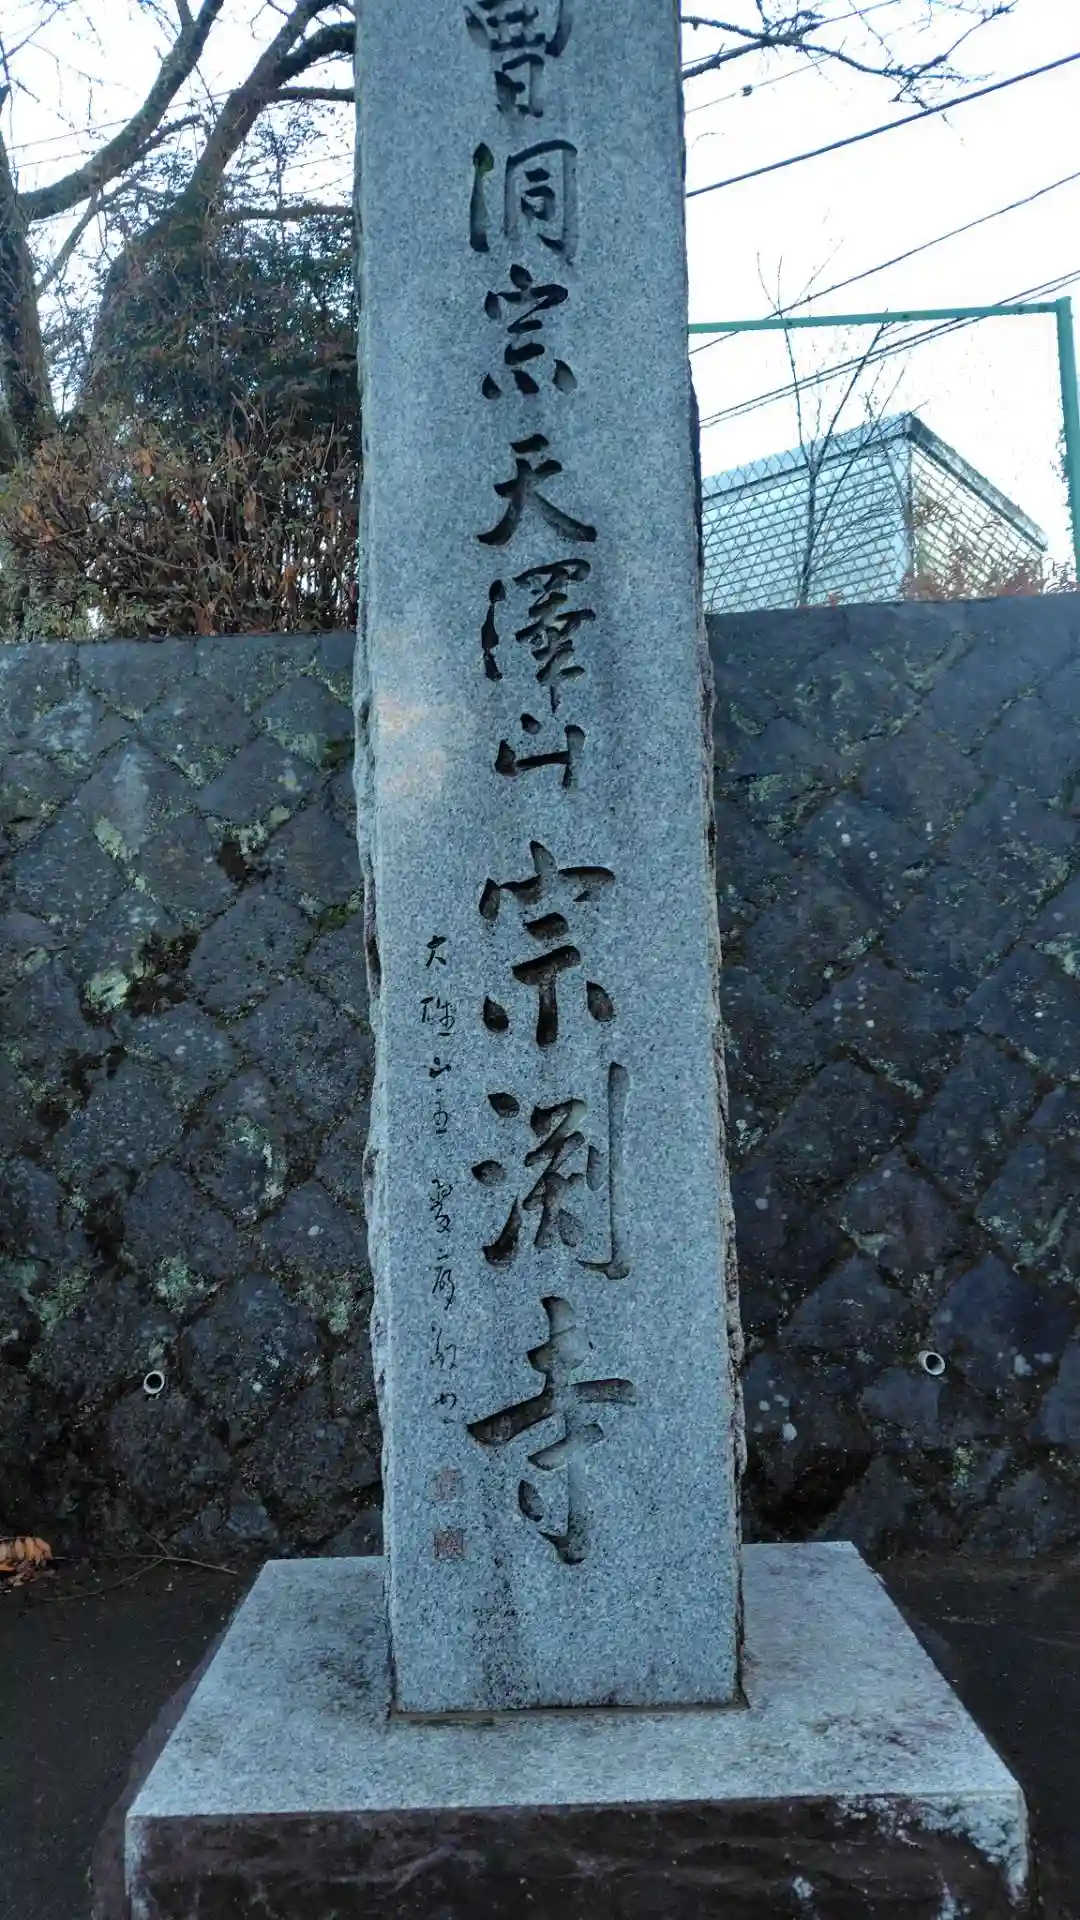 曹洞宗天澤山宗渕寺
大雄山主